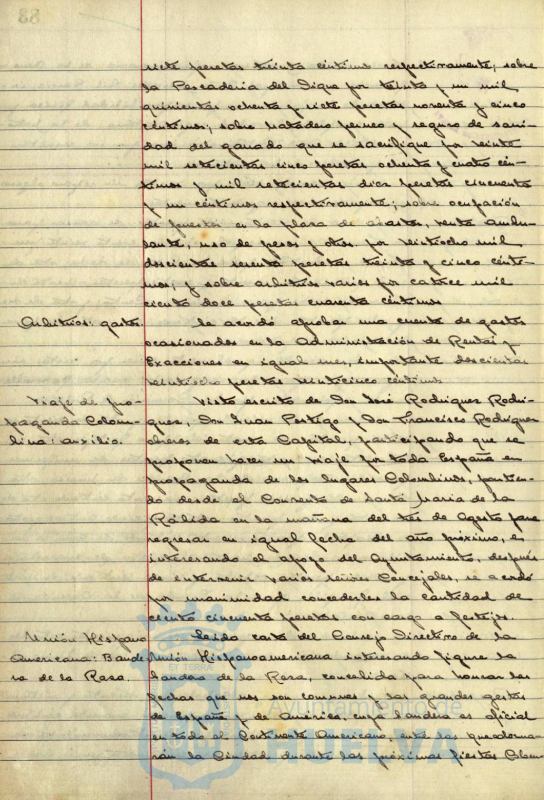 88
siete pesetas treinta céntimos respectivamente; sobre
la Pescadería del Dique por treinta y un mil
quinientas ochenta y siete pesetas noventa y cinco
céntimos; sobre matadero perneo y seguro de sani-
dad del ganado que se sacrifique por veinte
mil setecientas cinco pesetas ochenta y cuatro cén-
timos y mil setecientas diez pesetas cincuenta
y un céntimos respectivamente; sobre ocupación
de puestos en la plaza de abastos, venta ambu-
lante, uso de pesos y otros por veintiocho mil
doscientas sesenta pesetas treinta y cinco cénti-
mos; y sobre arbitrios varios por catorce mil
ciento doce pesetas cuarenta céntimos
Arbitrios: gastos. Se acordó aprobar una cuenta de gastos
ocasionados en la Administración de Rentas y
Exacciones en igual mes, importante doscientas
veintiocho pesetas veinticinco céntimos
Viaje de pro- Visto escrito de Don José Rodríguez Rodrí-
paganda Colom- guez, Don Juan Postigo y Don Francisco Rodríguez
bina: auxilio. obreros de esta Capital, participando que se
proponen hacer un viaje por toda España en
propaganda de los lugares Colombinos, partien-
do desde el Convento de Santa María de la
Rábida en la mañana del tres de Agosto para
regresar en igual fecha del año próximo, e
interesando el apoyo del Ayuntamiento, después
de intervenir varios señores Concejales, se acordó
por unanimidad concederles la cantidad de
ciento cincuenta pesetas con cargo a festejos.
Unión Hispano Leida carta del Consejo Directivo de la
Americana: Bande- Unión Hispanoamericana interesando figure la
ra de la Raza. bandera de la Raza, concebida para honrar las
fechas que nos son comunes y las grandes gestas
de España y de América, cuya bandera es oficial
en todo el Continente Americano, entre las que adorna-
rán la Ciudad durante las próximas fiestas Colom-
Ayuntamiento de
HUELVA